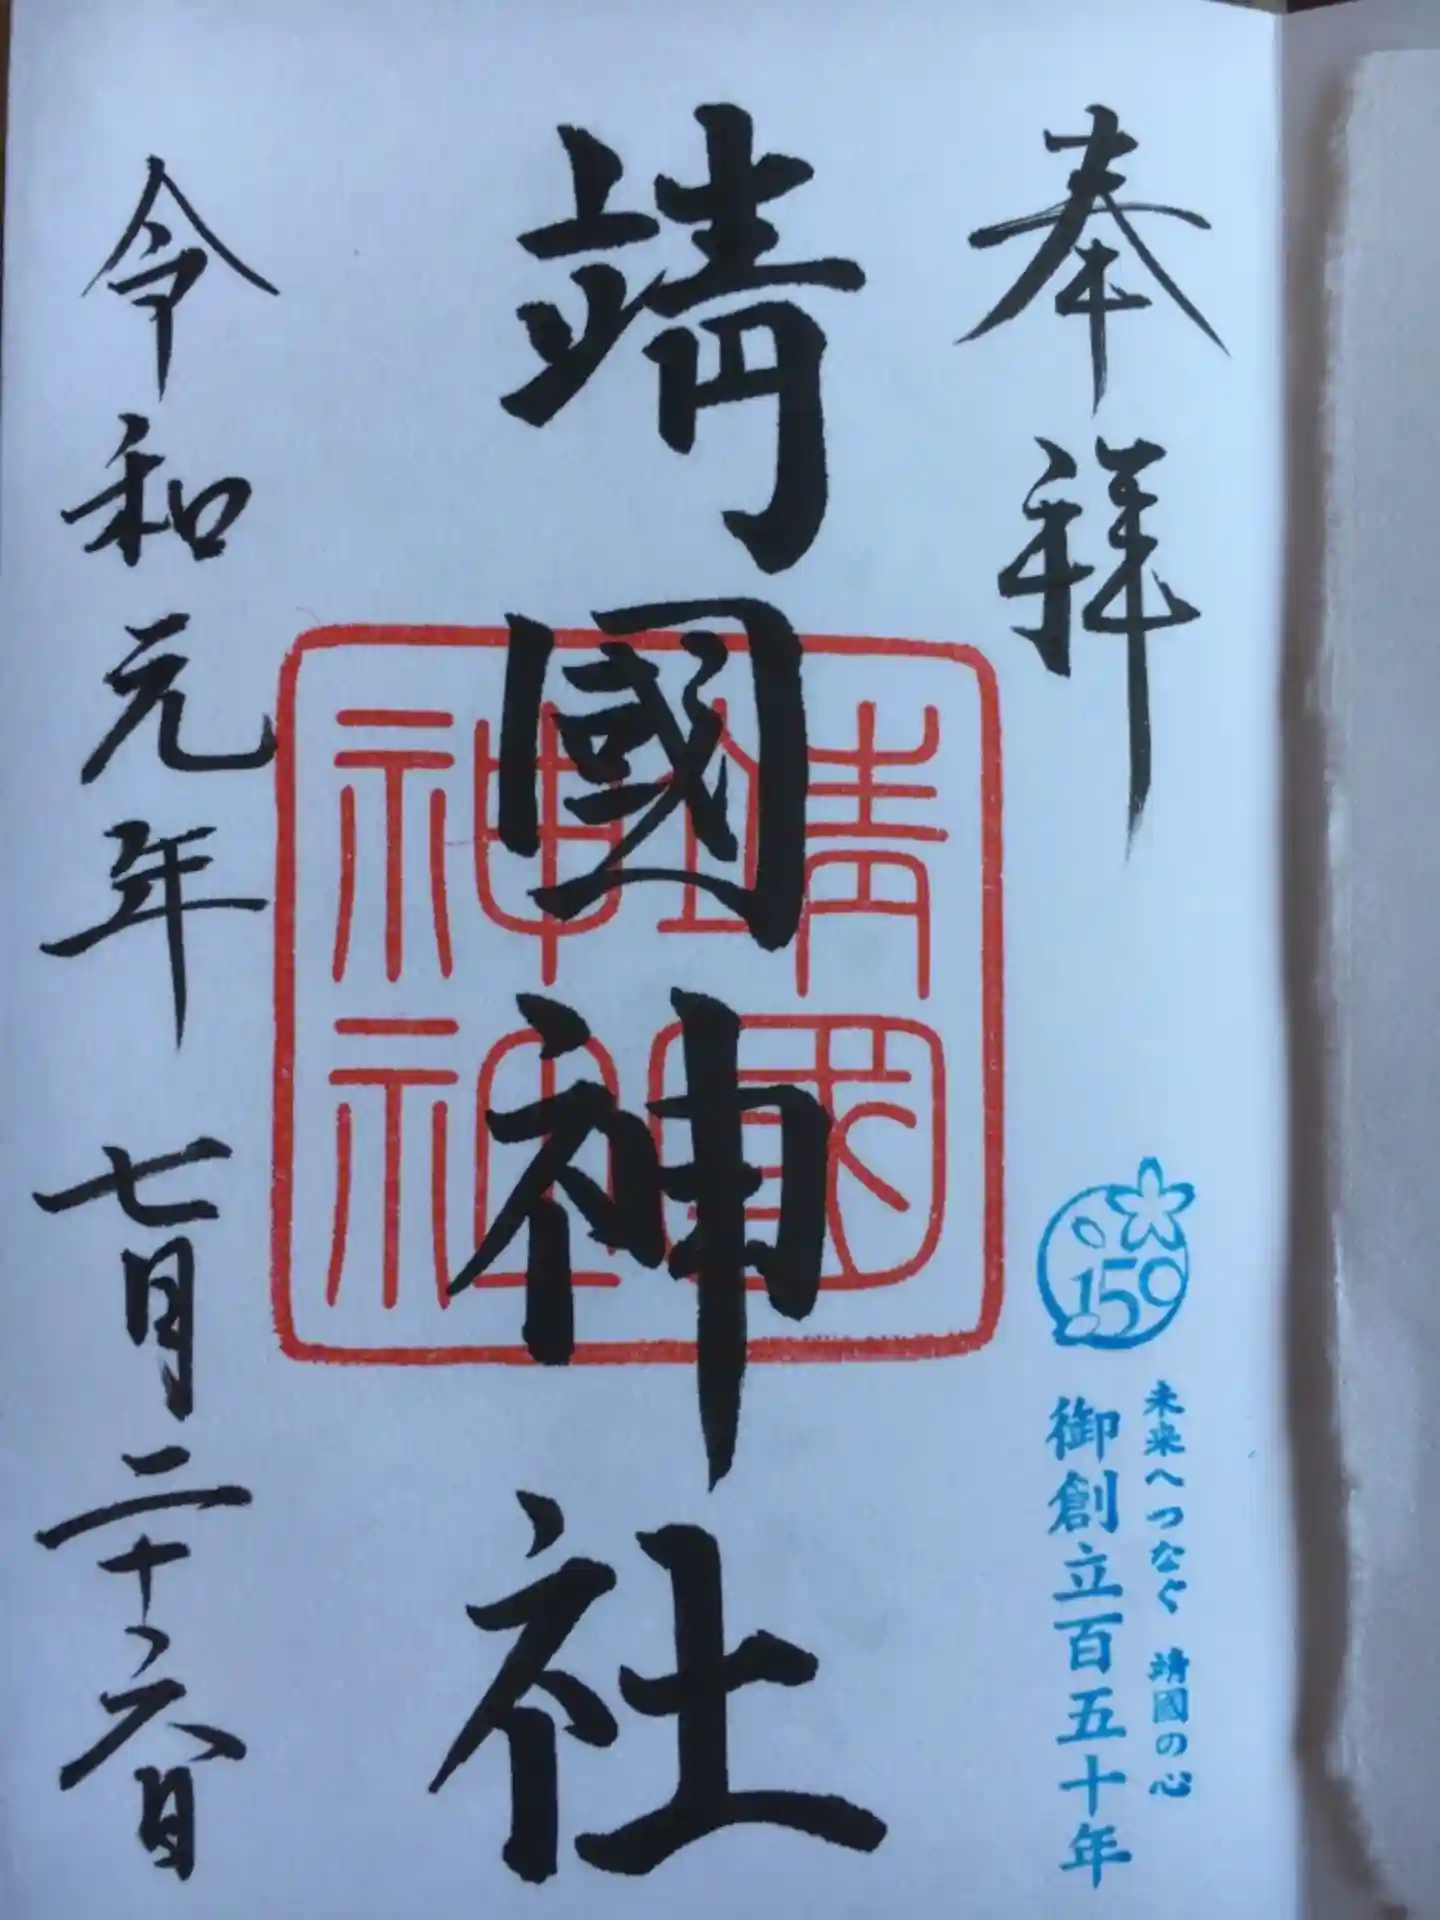 奉拝
150
未来へつなぐ 靖國の心
御創立百五十年
靖國神社
靖國神社
令和元年 七月二十六日